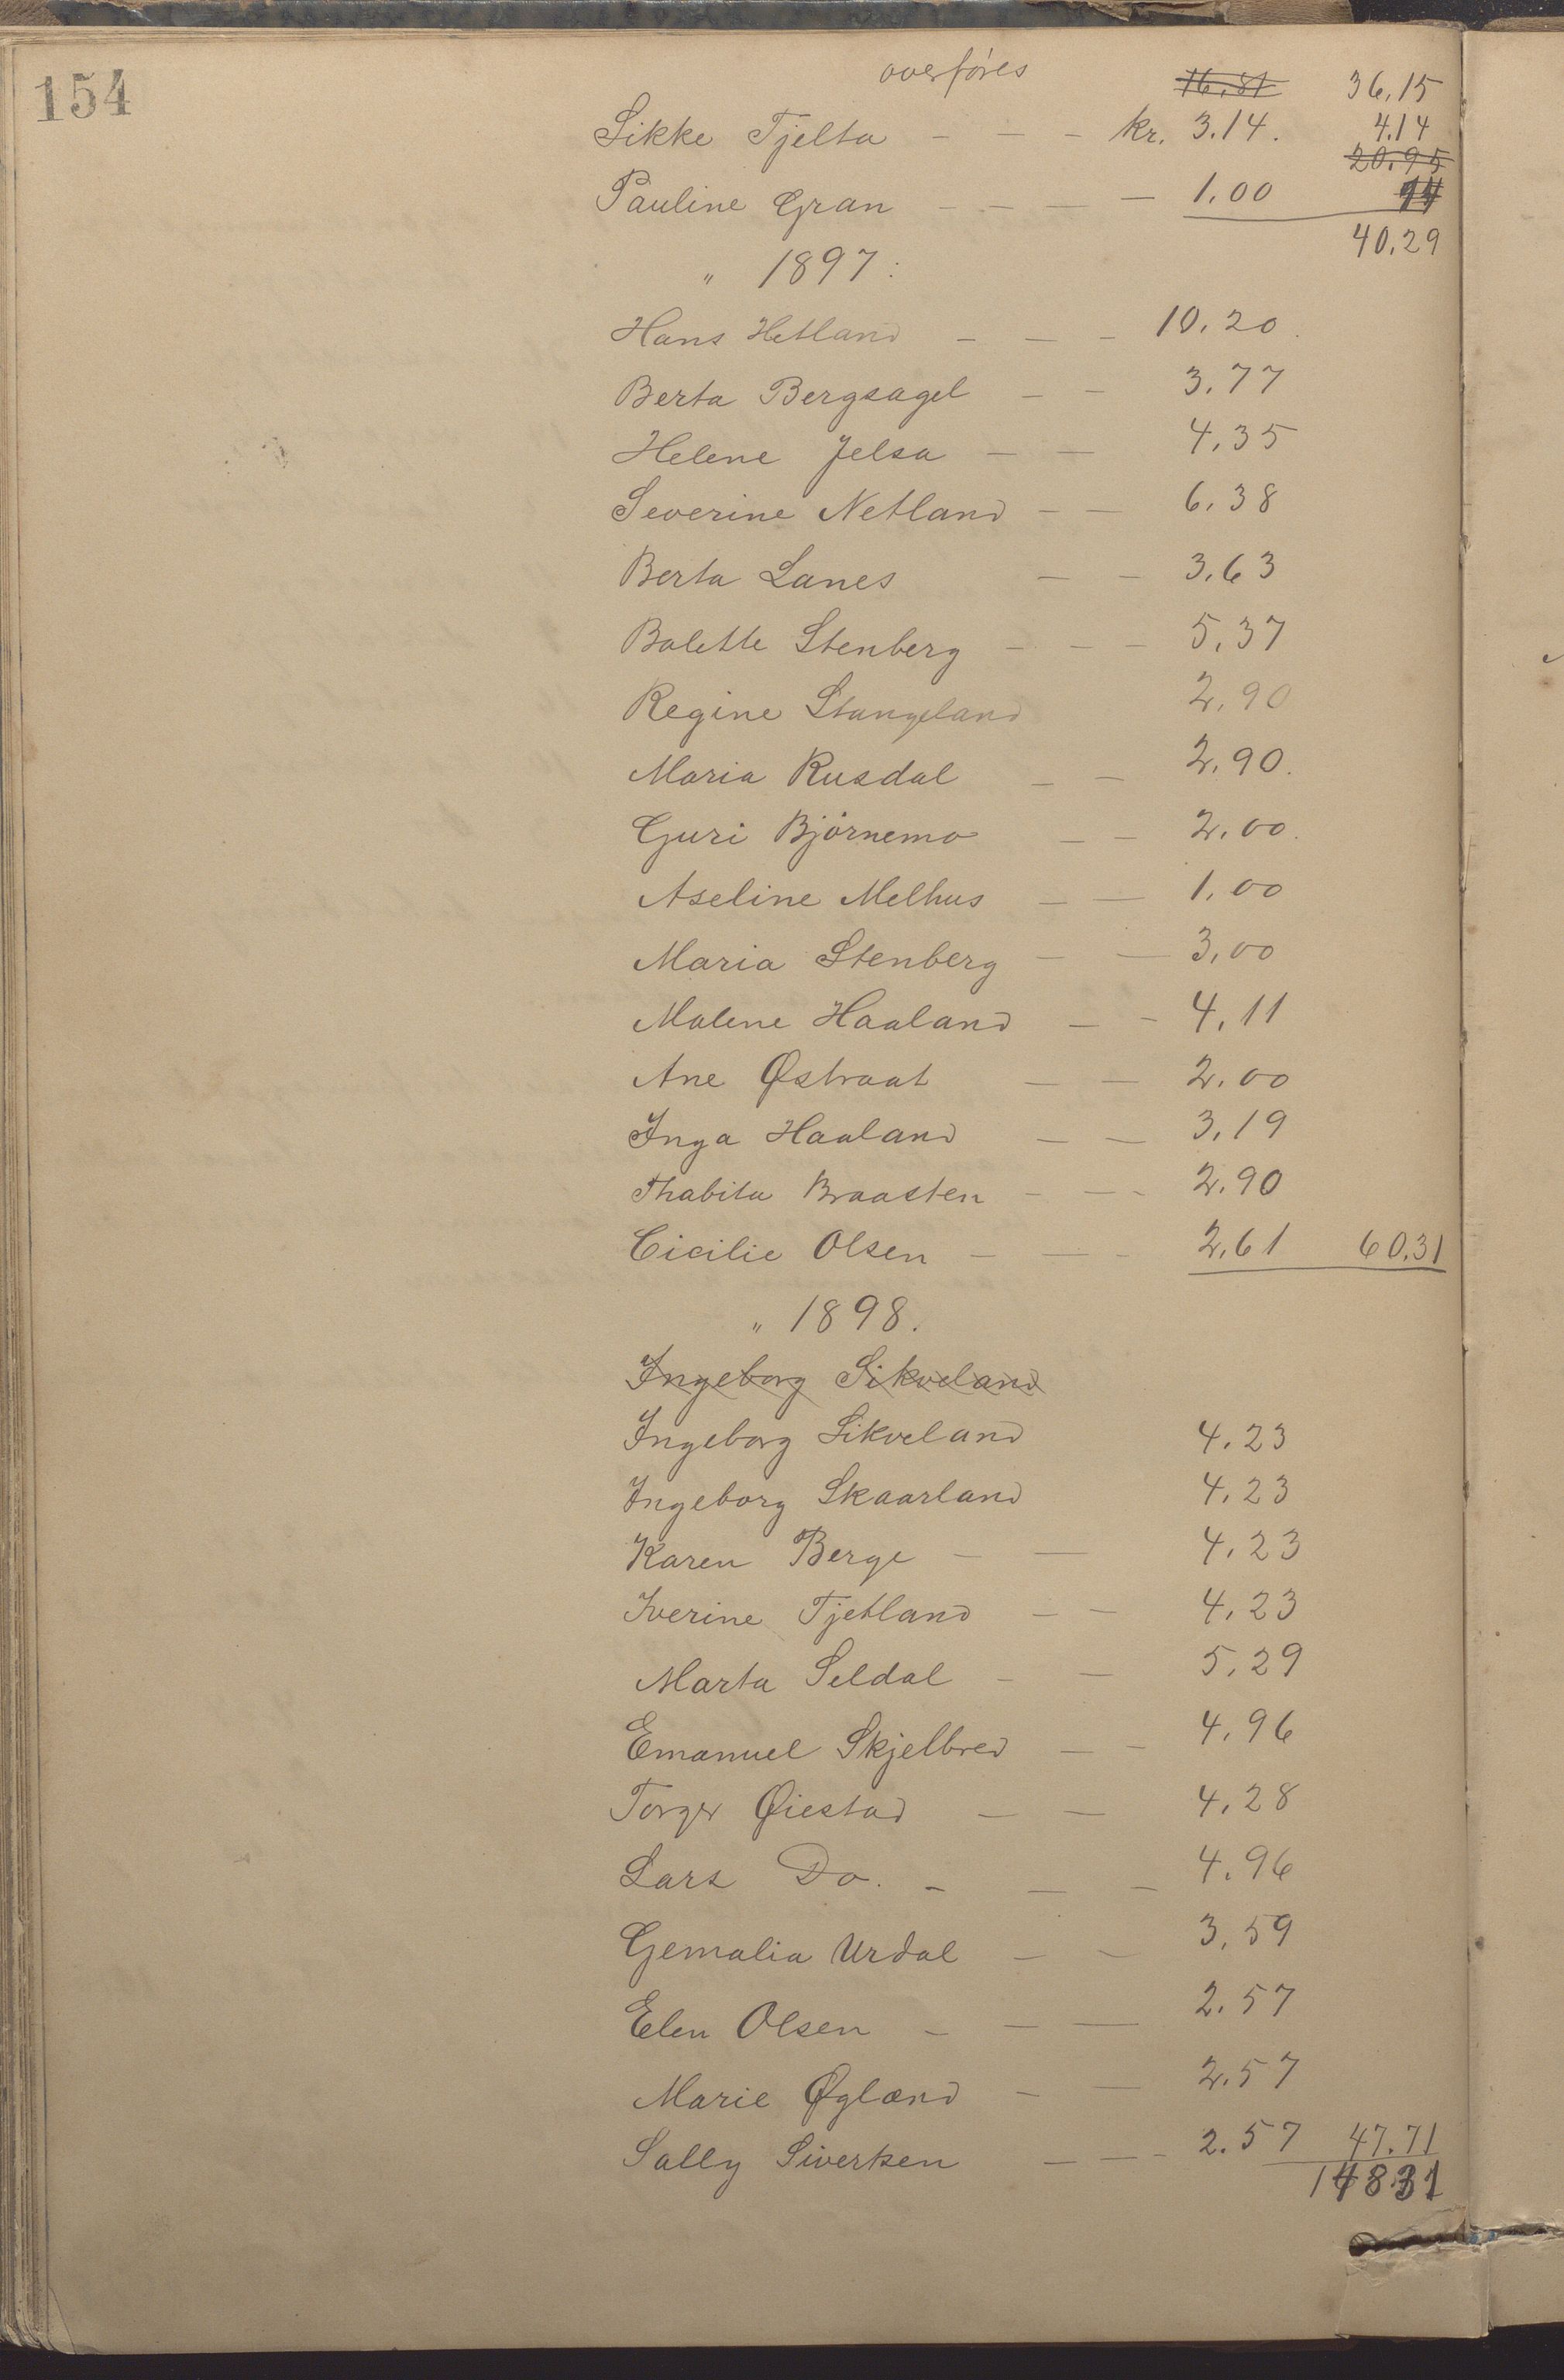 154
overføres 16,81 36,15
Sikke Tjelta - - - kr. 3.14. 4.14
20.95
Pauline Gran - - - - 1,00
40.29
" 1897:
Hans Hetland - - - 10.20.
Berta Bergsagel - - 3.77
Helene Jelsa - - 4.35
Severine Netland - - 6.38
Berta Lanes - - 3.63
Bolette Stenberg - - - 5.37
Regine Stangeland 2.90
Maria Rusdal - - 2.90.
Guri Bjørnemo - - 2.00.
Aseline Melhus - - 1.00
Maria Stenberg - - 3,00
Malene Haaland - - 4.11
Ane Østraat - - 2.00
Inga Haaland - - 3,19
Thabita Braasten - - - 2.90
Cicilie Olsen - - - 2,61 60.31
" 1898.
Ingeborg Sikveland
Ingeborg Sikveland 4.23
Ingeborg Skaarland 4.23
Karen Berge - - 4.23
Iverine Tjetland - - 4.23
Marta Seldal - - 5.29
Emanuel Skjelbred - - 4.96
Torger Øiestad - - 4.28
Lars Do. - - - 4.96
Gemalia Urdal - - 3,59
Elen Olsen - - - 2.57
Marie Øgland - - 2.57
Sally Siversen - - - 2.57 47.71
148.31